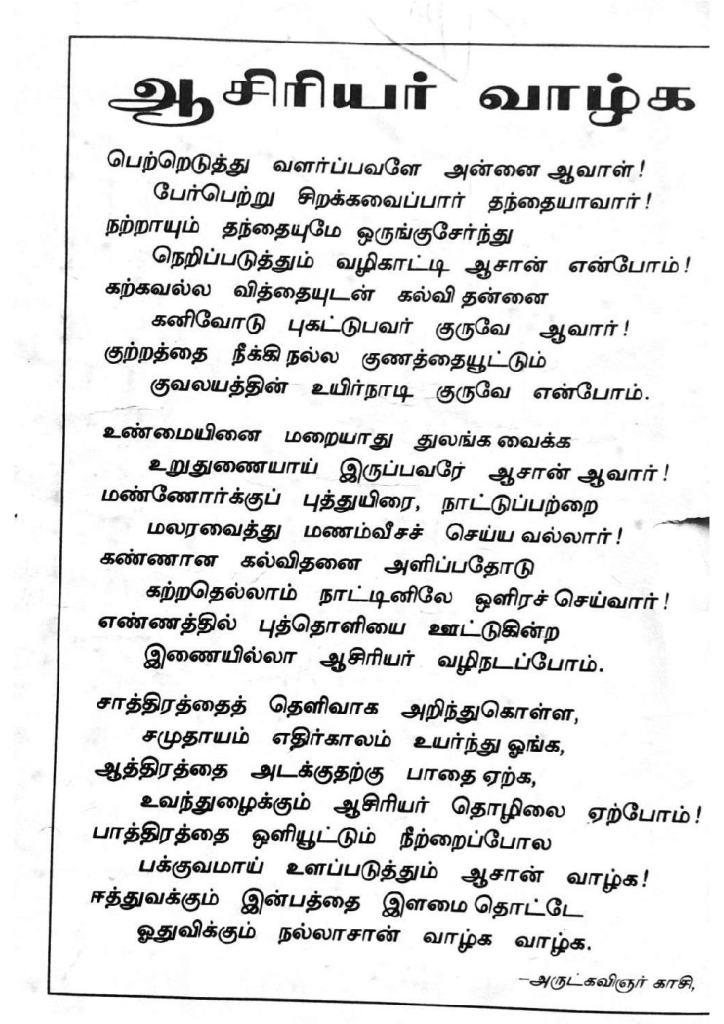 ஆசிரியர் வாழ்க
பெற்றெடுத்து வளர்ப்பவளே அன்னை ஆவாள்!
பேர்பெற்று சிறக்கவைப்பார் தந்தையாவார்!
நற்றாயும் தந்தையுமே ஒருங்குசேர்ந்து
நெறிப்படுத்தும் வழிகாட்டி ஆசான் என்போம்!
கற்கவல்ல வித்தையுடன் கல்வி தன்னை
கனிவோடு புகட்டுபவர் குருவே ஆவார்!
குற்றத்தை நீக்கி நல்ல குணத்தையூட்டும்
குவலயத்தின் உயிர்நாடி குருவே என்போம்.
உண்மையினை மறையாது துலங்க வைக்க
உறுதுணையாய் இருப்பவரே ஆசான் ஆவார்!
மண்ணோர்க்குப் புத்துயிரை, நாட்டுப்பற்றை
மலரவைத்து மணம்வீசச் செய்ய வல்லார்!
கண்ணான கல்விதனை அளிப்பதோடு
கற்றதெல்லாம் நாட்டினிலே ஒளிரச் செய்வார்!
எண்ணத்தில் புத்தொளியை ஊட்டுகின்ற
இணையில்லா ஆசிரியர் வழிநடப்போம்.
சாத்திரத்தைத் தெளிவாக அறிந்துகொள்ள,
சமுதாயம் எதிர்காலம் உயர்ந்து ஓங்க,
ஆத்திரத்தை அடக்குதற்கு பாதை ஏற்க,
உவந்துழைக்கும் ஆசிரியர் தொழிலை ஏற்போம்!
பாத்திரத்தை ஒளியூட்டும் நீற்றைப்போல
பக்குவமாய் உளப்படுத்தும் ஆசான் வாழ்க!
ஈத்துவக்கும் இன்பத்தை இளமை தொட்டே
ஓதுவிக்கும் நல்லாசான் வாழ்க வாழ்க.
–அருட்கவிஞர் காசி,